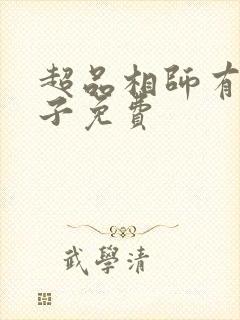 超品相師有
子免費
武學清